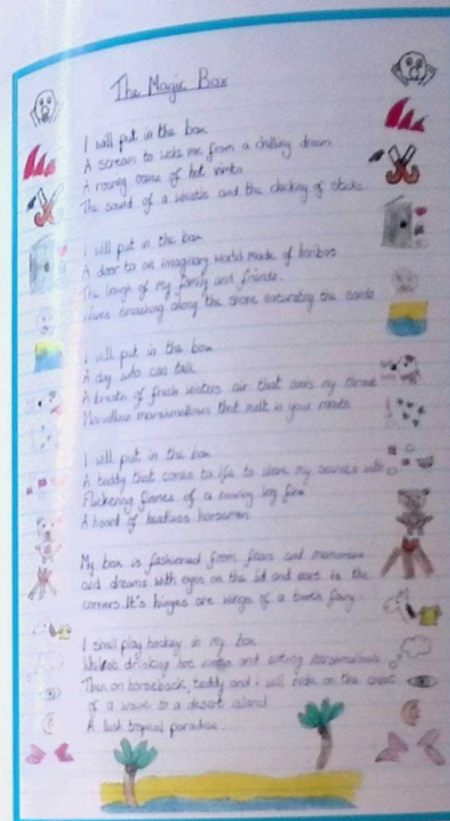 The Magic Box
I will put in the box
A scream to wake me from a chilling dream
A roaring of hot
The sound of a whistle and the clicking of sticks
I will put in the box
A door to an imaginary world made of
The laugh of my family and friends
Waves crashing along the shore saturating the sands
I will put in the box
A dog who can talk
A breath of fresh winters air that cools my throat
marshmallows that melt in your mouth
I will put in the box
A teddy that comes to life to share my secrets with
Flickering flames of a roaring log fire
A hoard of headless horsemen
My box is fashioned from fears and memories
and dreams with eyes on the lid and ears in the
corners. It's hinges are wings of a tooth fairy
I shall play hockey in my box
Whilst drinking hot and eating marshmallows
Then on horseback, teddy and i will ride on the crest
of a wave to a desert island
A lush tropical paradise.